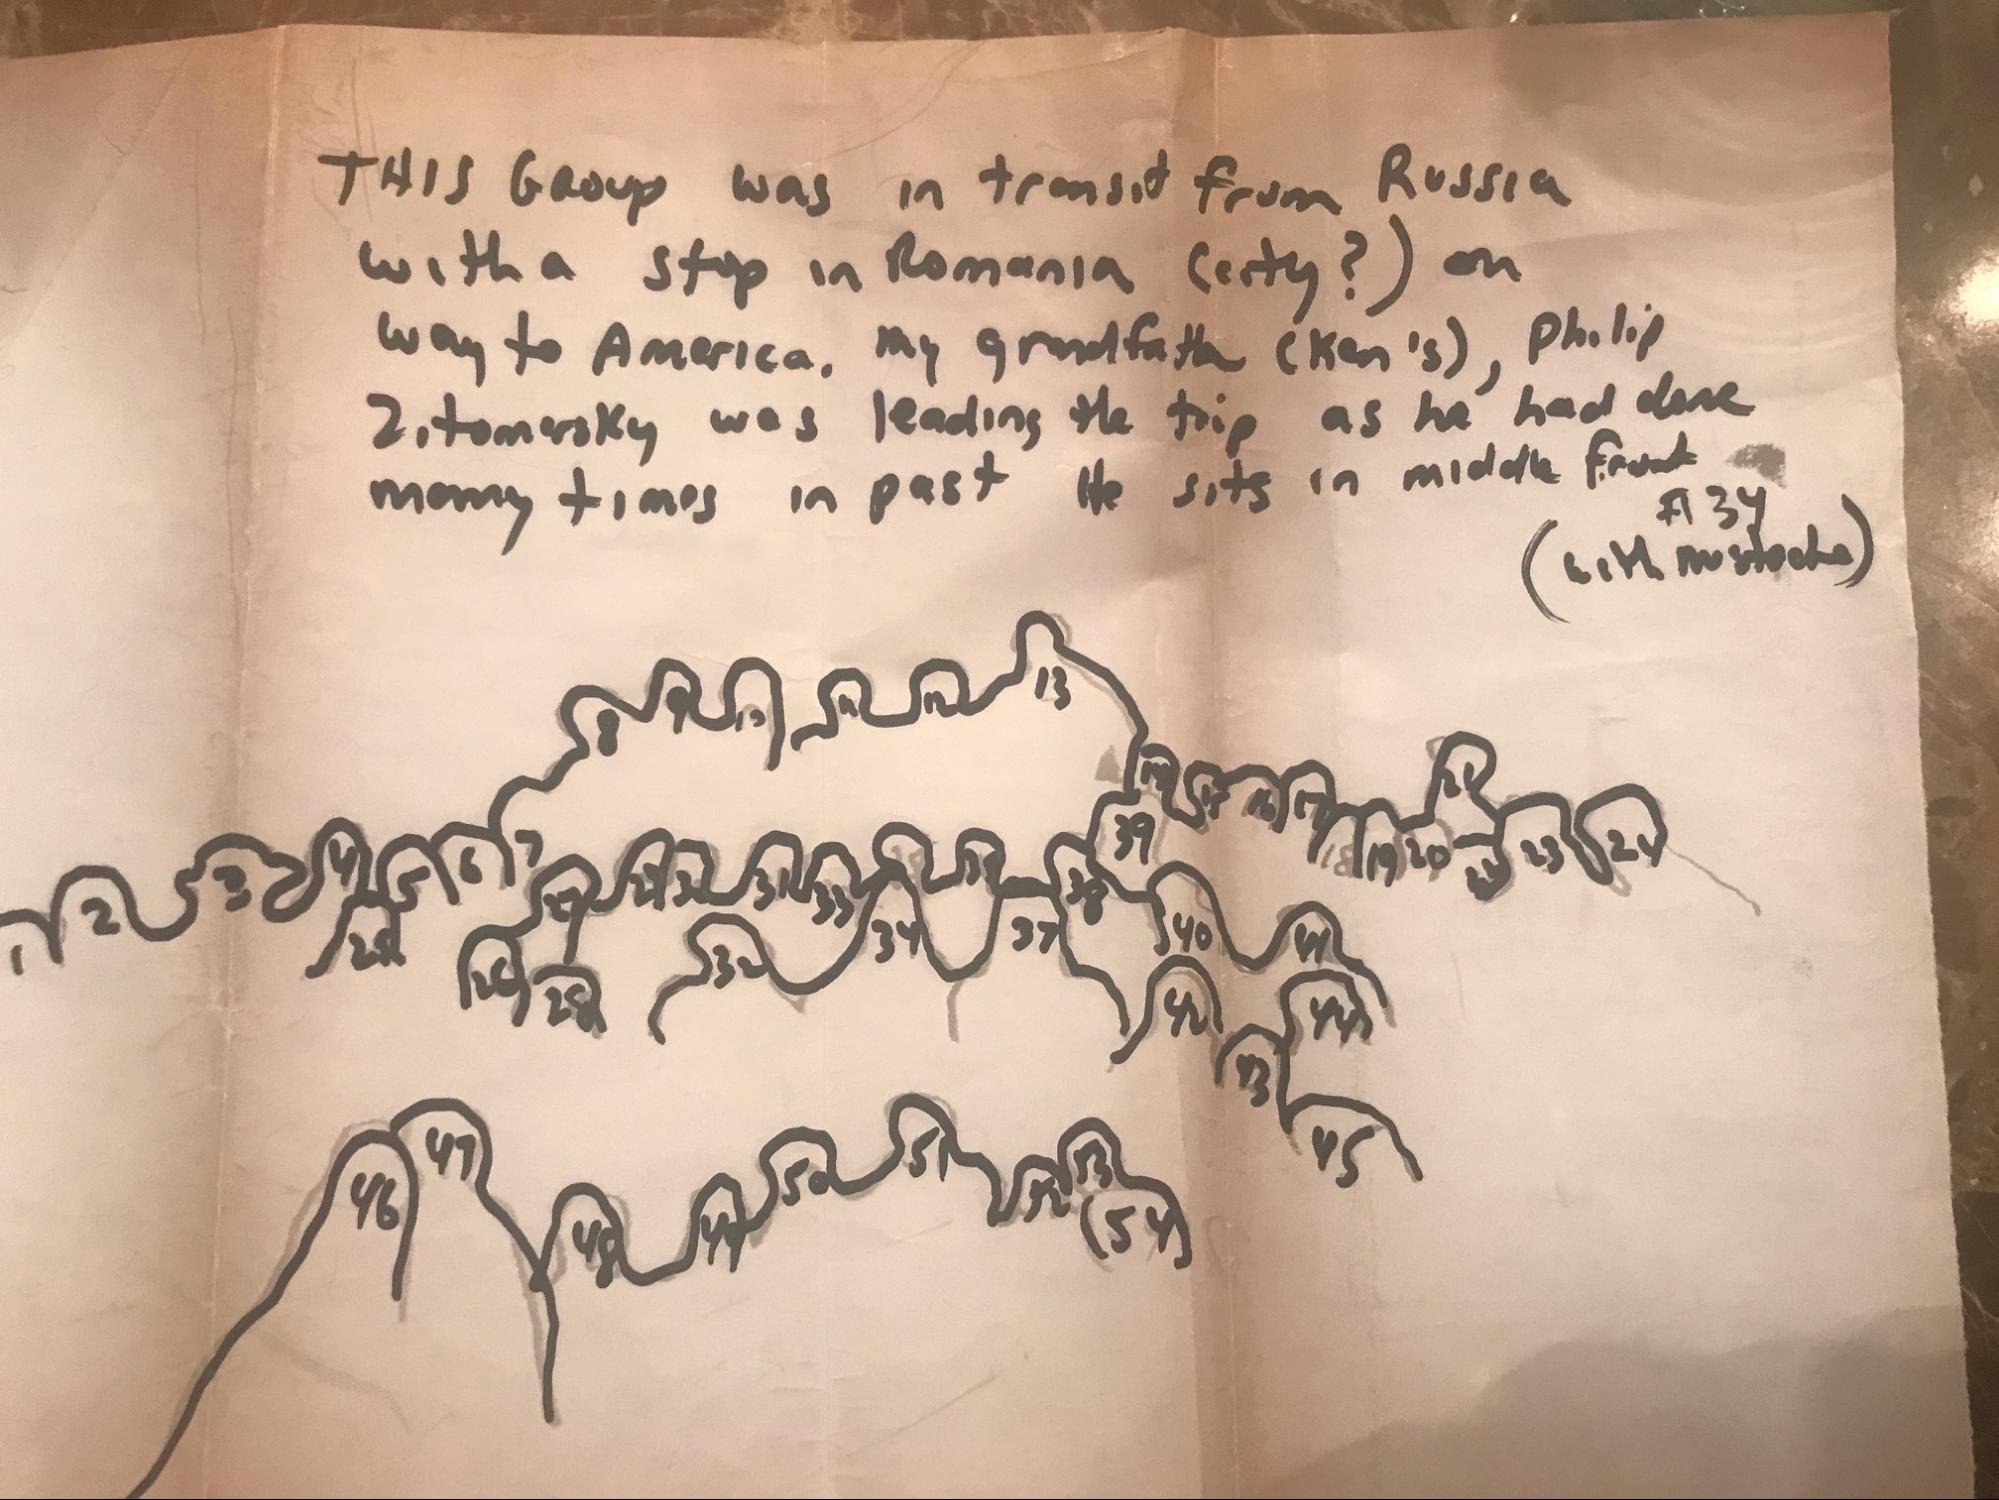 THIS Group was in transit from Russia
with a stop in Romania (city?) on
way to America. My grandfather (Ken's), Philip
Zitomersky was leading the trip as he had done
many times in past He sits in middle front
# 34
(with mustache)
13
8 9 10 11 12
14 15 16 17 21
39 18 19 20 22 23 24
1 2 3 4 5 6 7
27 29 30 31 33 35 36 38
25 26 28 32 34 37 40 41
42 44
43
45
46 47 48 49 50 51 52 53
(54)